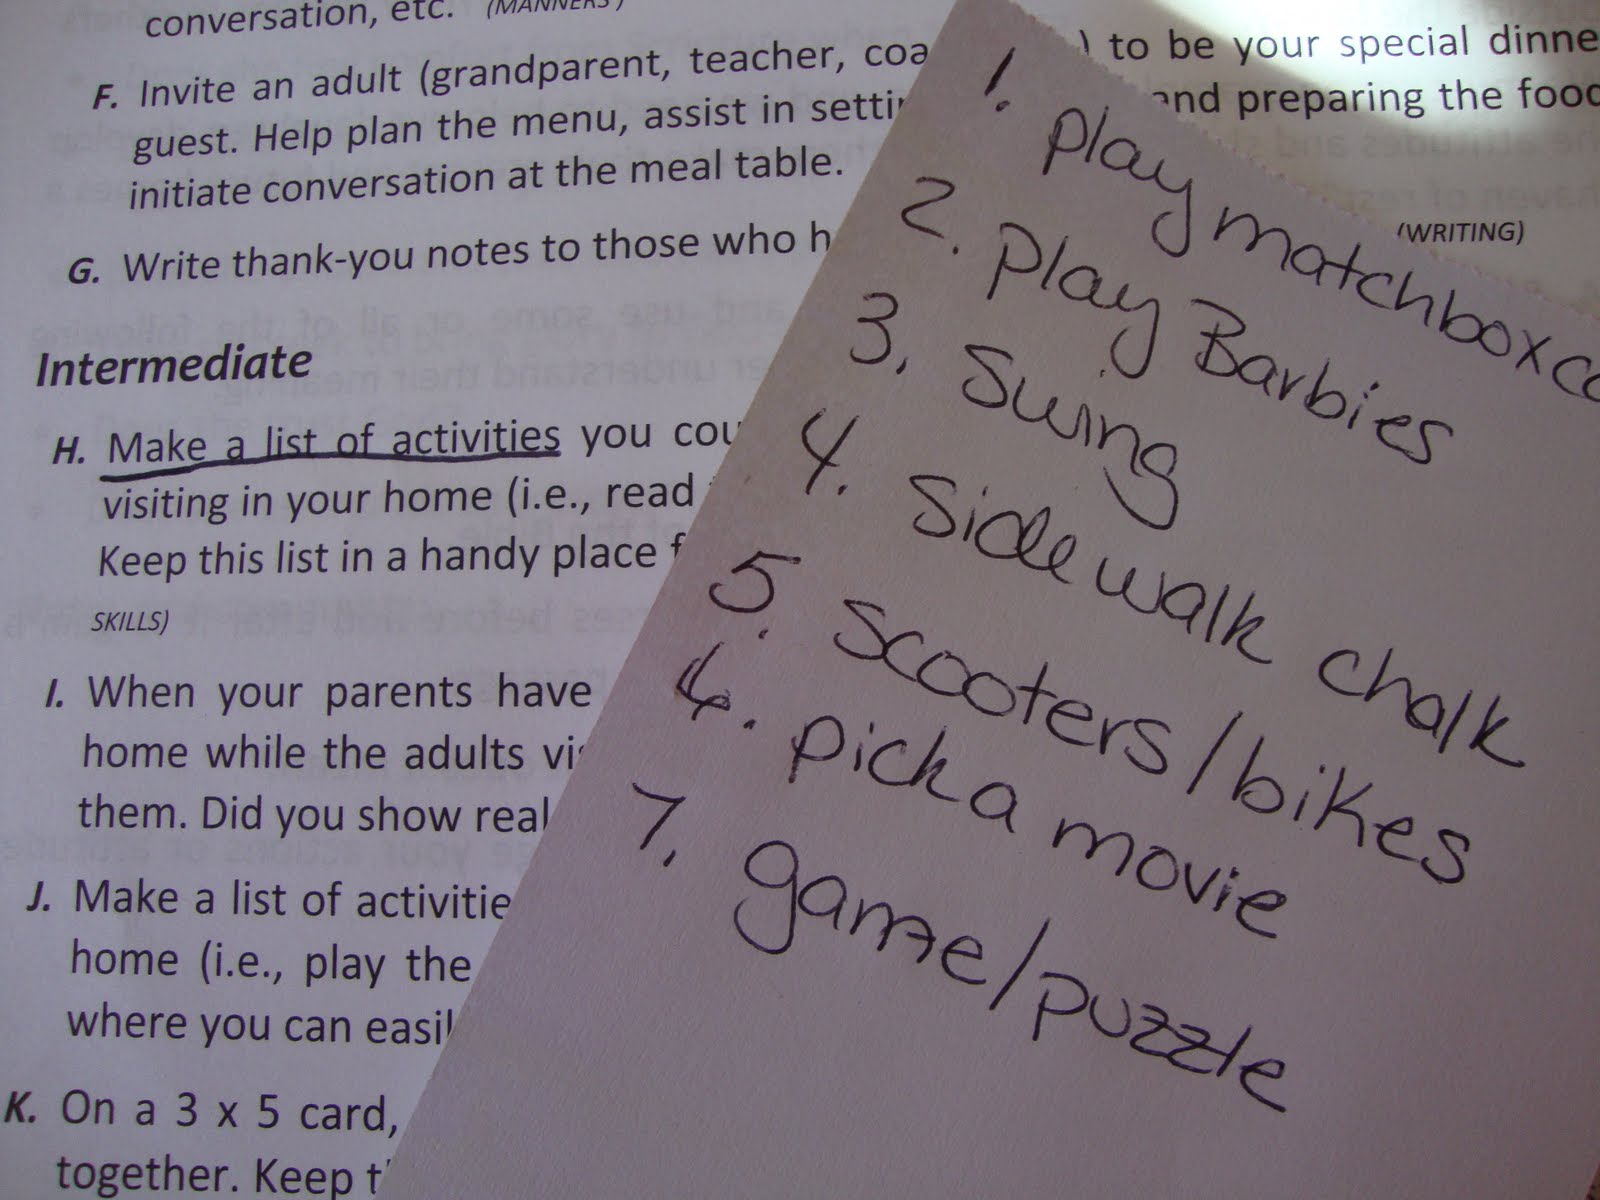 conversation, etc. (MANNERS)
F. Invite an adult (grandparent, teacher, coa ) to be your special dinne
guest. Help plan the menu, assist in settin and preparing the food
initiate conversation at the meal table.
G. Write thank-you notes to those who h
(WRITING)
Intermediate
H. Make a list of activities you cou
visiting in your home (i.e., read
Keep this list in a handy place f
SKILLS)
I. When your parents have
home while the adults vis
them. Did you show real
J. Make a list of activitie
home (i.e., play the
where you can easil
K. On a 3 x 5 card,
together. Keep t
1. play matchbox ca
2. Play Barbies
3. Swing
4. Sidewalk chalk
5. Scooters/bikes
6. pick a movie
7. game/puzzle